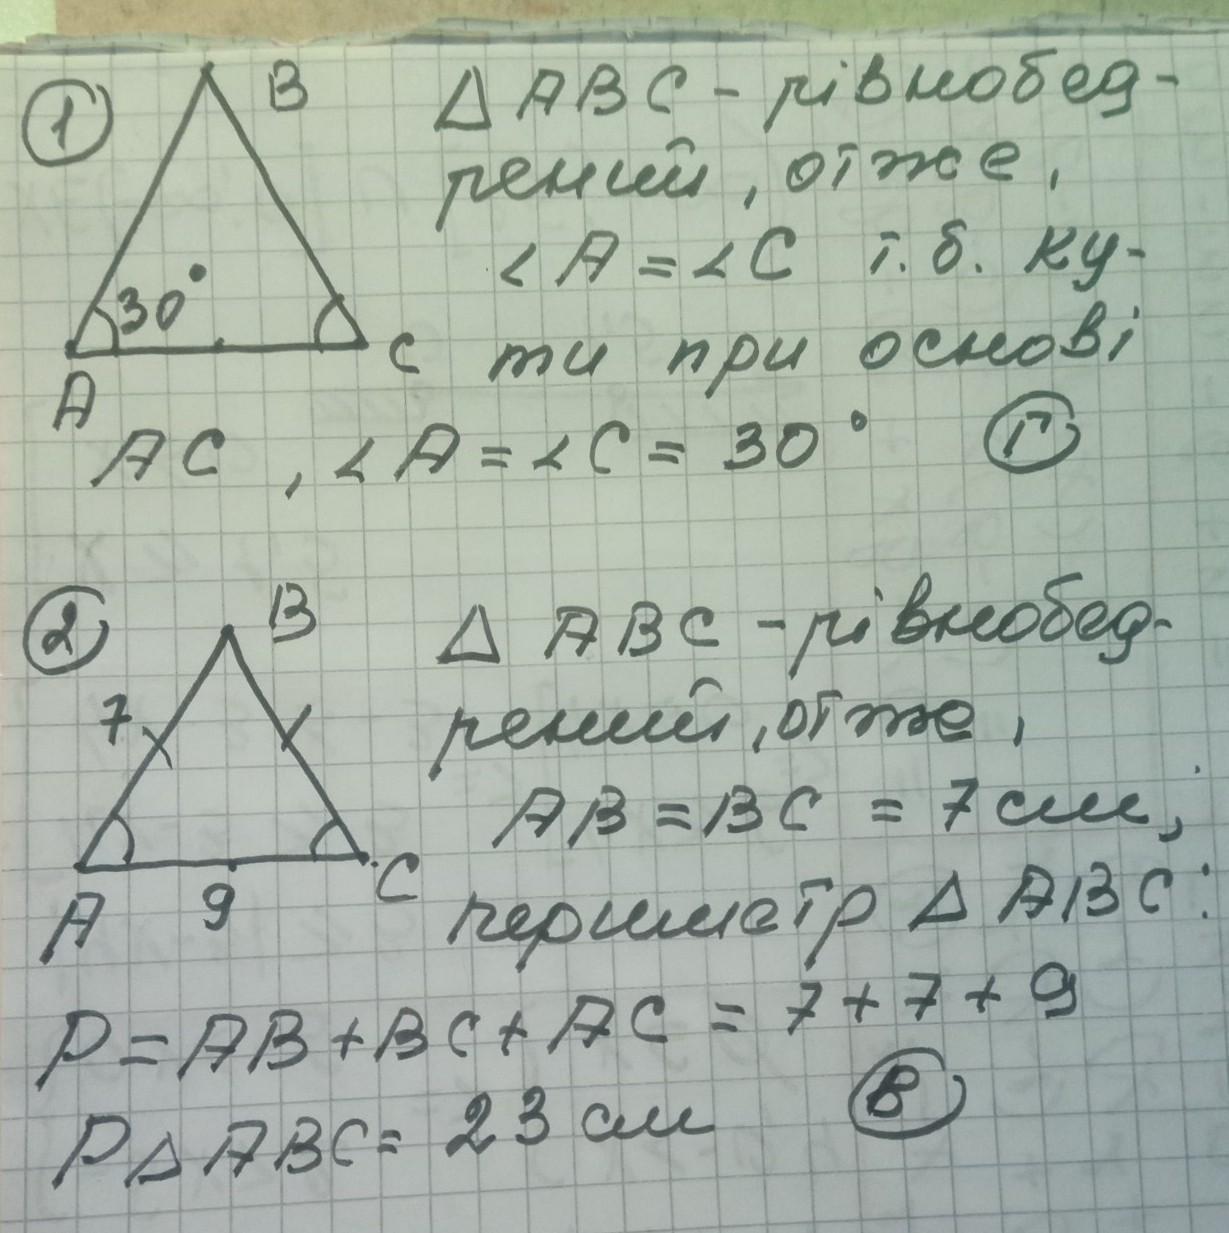 1
B
△ ABC - рівнобед-
рений, отже,
∠A = ∠C т.б. ку-
30°
A
C
ти при основі
AC , ∠A = ∠C = 30°
Г
2
B
△ ABC - рівнобед-
рений, отже,
7
AB = BC = 7 см;
A
9
C
периметр △ ABC:
P = AB + BC + AC = 7 + 7 + 9
P△ABC = 23 см
В